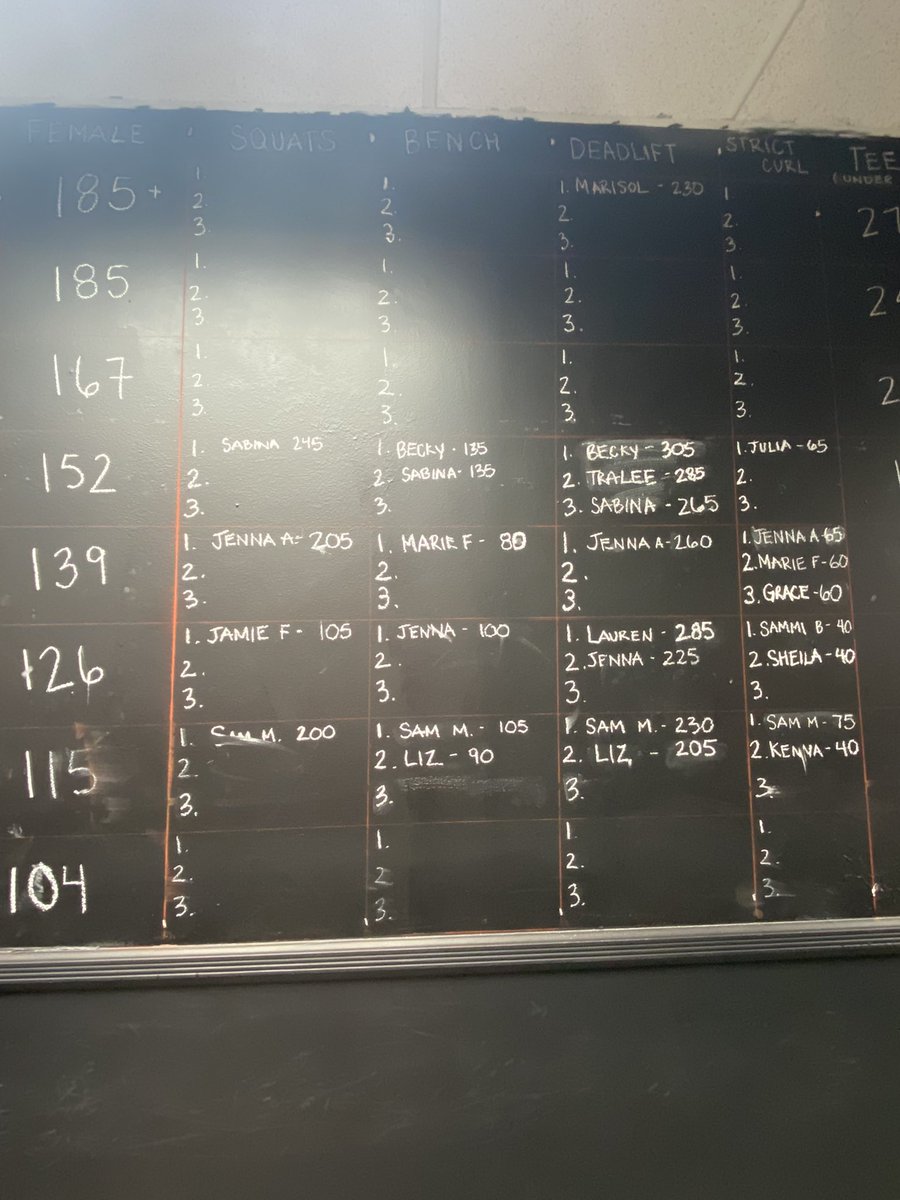 FEMALE • SQUATS • BENCH • DEADLIFT • STRICT CURL TEE
(UNDER
185+ 1. 1. 1. MARISOL - 230 1 27
2. 2. 2. 2.
3. 3. 3. 3.
185 1. 1. 1. 1. 2
2. 2. 2. 2.
3 3. 3. 3.
167 1. 1. 1. 1. 2
2. 2. 2. 2.
3. 3. 3. 3.
152 1. SABINA 245 1. BECKY - 135 1. BECKY - 305 1. JULIA - 65
2. 2. SABINA - 135 2. TRALEE - 285 2.
3. 3. 3. SABINA - 265 3.
139 1. JENNA A - 205 1. MARIE F - 80 1. JENNA A - 260 1. JENNA A - 65
2. 2. 2. 2. MARIE F - 60
3. 3. 3. 3. GRACE - 60
126 1. JAMIE F - 105 1. JENNA - 100 1. LAUREN - 285 1. SAMMI B - 40
2. 2. 2. JENNA - 225 2. SHEILA - 40
3. 3. 3 3.
115 1. SAM M. 200 1. SAM M. - 105 1. SAM M. - 230 1. SAM M - 75
2. 2. LIZ - 90 2. LIZ - 205 2. KENYA - 40
3. 3. 3. 3.
104 1. 1. 1. 1.
2. 2 2. 2.
3. 3. 3. 3.